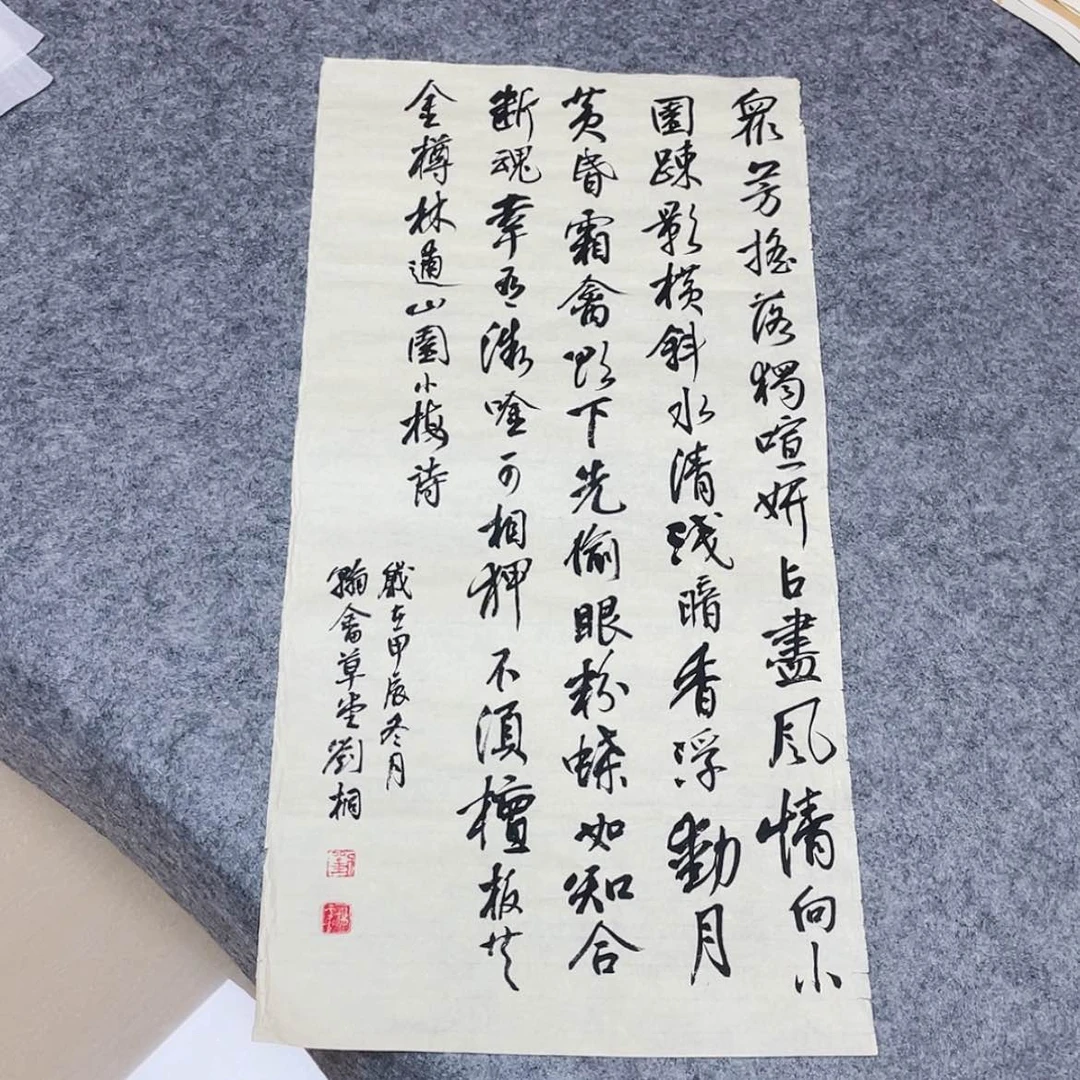 眾芳搖落獨喧妍占盡風情向小
園踈影橫斜水清淺暗香浮動月
黃昏霜禽欲下先偷眼粉蝶如知合
斷魂幸有微吟可相狎不須檀板共
金樽林逋山園小梅詩
歲在甲辰冬月
草堂劉桐